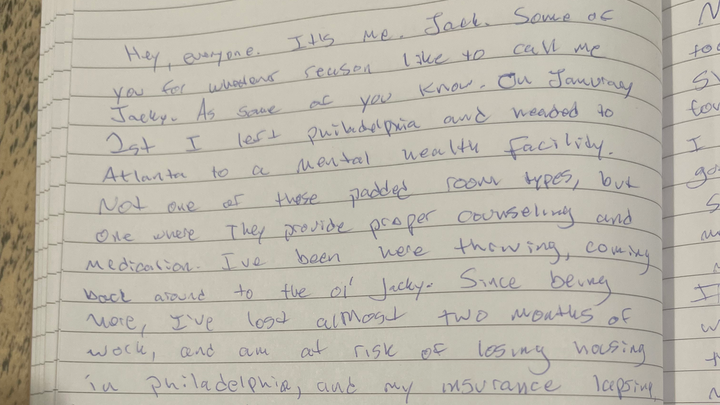 Hey, everyone. It's me. Jack. Some of
you for whatever reason like to call me
Jacky. As some of you know. On January
21st I left Philadelphia and headed to
Atlanta to a mental health facility.
Not one of those padded room types, but
one where They provide proper counseling and
medication. I've been here thriving, coming
back around to the ol' Jacky. Since being
here, I've lost almost two months of
work, and am at risk of losing housing
in Philadelphia, and my insurance lapsing,
I
I